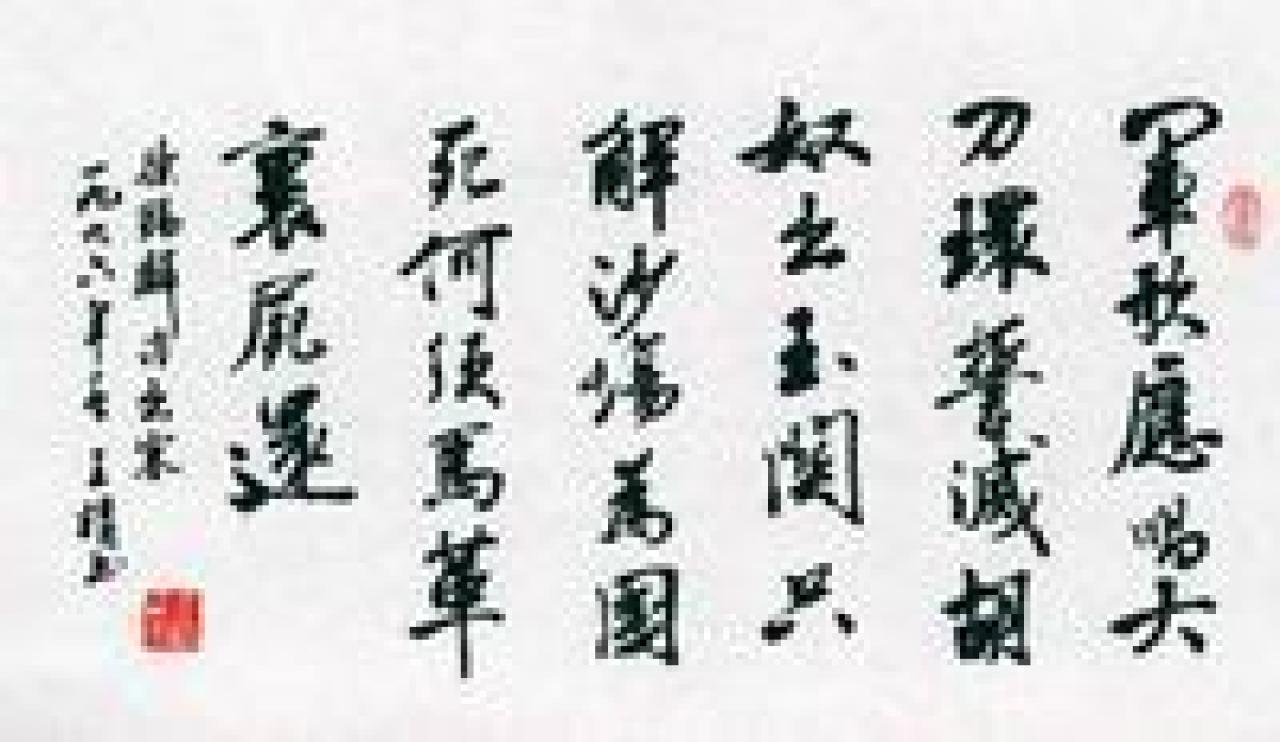 軍歌應唱大
刀環誓滅胡
奴出玉関只
解沙場為國
死何須馬革
裹屍還
徐錫麟詩出塞
一九八八年